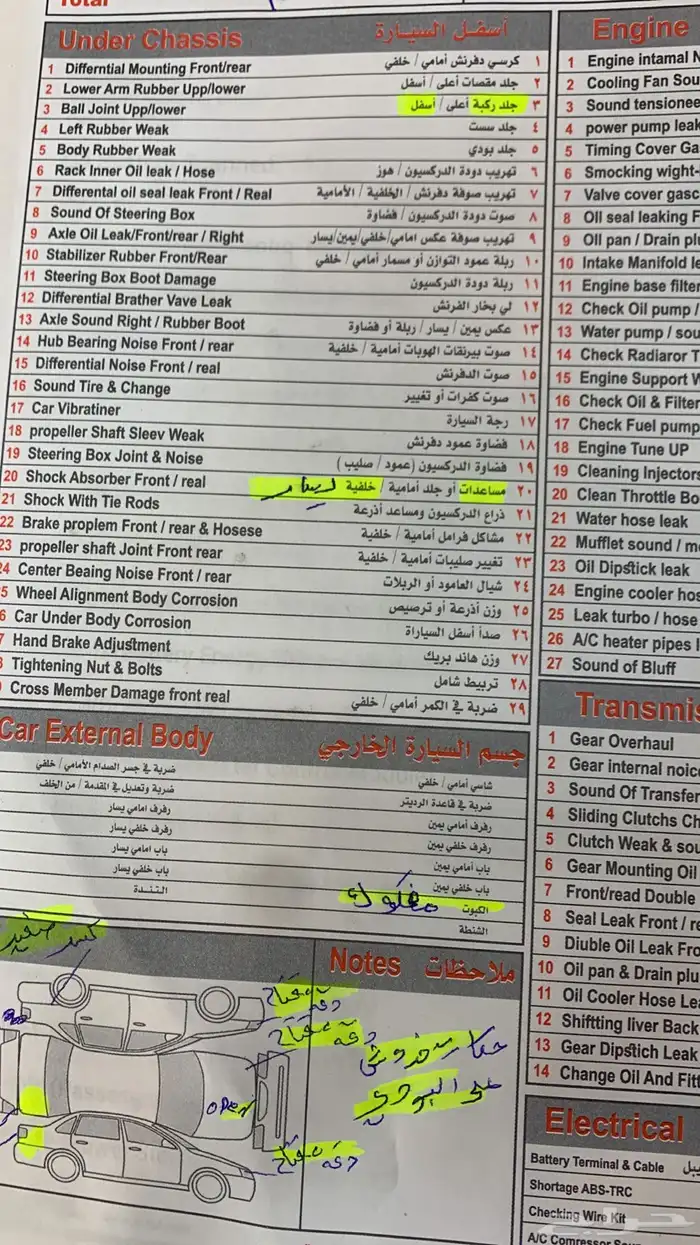 Total
Under Chassis أسفل السيارة
1 Differntial Mounting Front/rear كرسي دفرنش أمامي / خلفي ١
2 Lower Arm Rubber Upp/lower جلد مقصات أعلى / أسفل ٢
3 Ball Joint Upp/lower جلد ركبة أعلى / أسفل ٣
4 Left Rubber Weak جلد سست ٤
5 Body Rubber Weak جلد بودي ٥
6 Rack Inner Oil leak / Hose تهريب دودة الدركسيون / هوز ٦
7 Differental oil seal leak Front / Real تهريب صوفة دفرنش / الخلفية / الأمامية ٧
8 Sound Of Steering Box صوت دودة الدركسيون / فضاوة ٨
9 Axle Oil Leak/Front/rear / Right تهريب صوفة عكس امامي/خلفي/يمين/يسار ٩
10 Stabilizer Rubber Front/Rear ربلة عمود التوازن أو مسمار أمامي / خلفي ١٠
11 Steering Box Boot Damage ربلة دودة الدركسيون ١١
12 Differential Brather Vave Leak لي بخار الفرنش ١٢
13 Axle Sound Right / Rubber Boot عكس يمين / يسار / ربلة أو فضاوة ١٣
14 Hub Bearing Noise Front / rear صوت بيرنقات الهوبات أمامية / خلفية ١٤
15 Differential Noise Front / real صوت الدفرنش ١٥
16 Sound Tire & Change صوت كفرات أو تغيير ١٦
17 Car Vibratiner رجة السيارة ١٧
18 propeller Shaft Sleev Weak فضاوة عمود دفرنش ١٨
19 Steering Box Joint & Noise فضاوة الدركسيون (عمود / صليب ) ١٩
20 Shock Absorber Front / real مساعدات أو جلد أمامية / خلفية يسار ٢٠
21 Shock With Tie Rods ذراع الدركسيون ومساعد أذرعة ٢١
22 Brake proplem Front / rear & Hosese مشاكل فرامل أمامية / خلفية ٢٢
23 propeller shaft Joint Front rear تغيير صليبات أمامية / خلفية ٢٣
24 Center Beaing Noise Front / rear شيال العامود أو الربلات ٢٤
5 Wheel Alignment Body Corrosion وزن أذرعة أو ترصيص ٢٥
6 Car Under Body Corrosion صدأ أسفل السياراة ٢٦
7 Hand Brake Adjustment وزن هاند بريك ٢٧
Tightening Nut & Bolts تربيط شامل ٢٨
Cross Member Damage front real ضربة في الكمر أمامي / خلفي ٢٩
Car External Body جسم السيارة الخارجي
ضربة في جسر الصدام الأمامي / خلفي شاسي أمامي / خلفي
ضربة وتعديل في المقدمة / من الخلف ضربة في قاعدة الرديتر
رفرف امامي يسار رفرف أمامي يمين
رفرف خلفي يسار رفرف خلفي يمين
باب امامي يسار باب أمامي يمين
باب خلفي يسار باب خلفي يمين
التندة الكبوت مفكوك
الشنطة
كسر صغير
Notes ملاحظات
OPEN
على البودي
Engine
1 Engine intamal N
2 Cooling Fan Sou
3 Sound tensionee
4 power pump leak
5 Timing Cover Ga
6 Smocking wight-
7 Valve cover gasc
8 Oil seal leaking F
9 Oll pan / Drain pl
10 Intake Manifold le
11 Engine base filter
12 Check Oil pump /
13 Water pump / sou
14 Check Radiaror T
15 Engine Support W
16 Check Oil & Filter
17 Check Fuel pump
18 Engine Tune UP
19 Cleaning Injectors
20 Clean Throttle Bo
21 Water hose leak
22 Mufflet sound / m
23 Oil Dipstick leak
24 Engine cooler hos
25 Leak turbo / hose
26 A/C heater pipes l
27 Sound of Bluff
Transmis
1 Gear Overhaul
2 Gear internal noic
3 Sound Of Transfer
4 Sliding Clutchs Ch
5 Clutch Weak & sou
6 Gear Mounting Oil
7 Front/read Double
8 Seal Leak Front / re
9 Diuble Oil Leak Fro
10 Oil pan & Drain plu
11 Oil Cooler Hose Le
12 Shiftting liver Back
13 Gear Dipstich Leak
14 Change Oil And Fitt
Electrical
Battery Terminal & Cable
Shortage ABS-TRC
Checking Wire Kit
A/C Comressor Soun